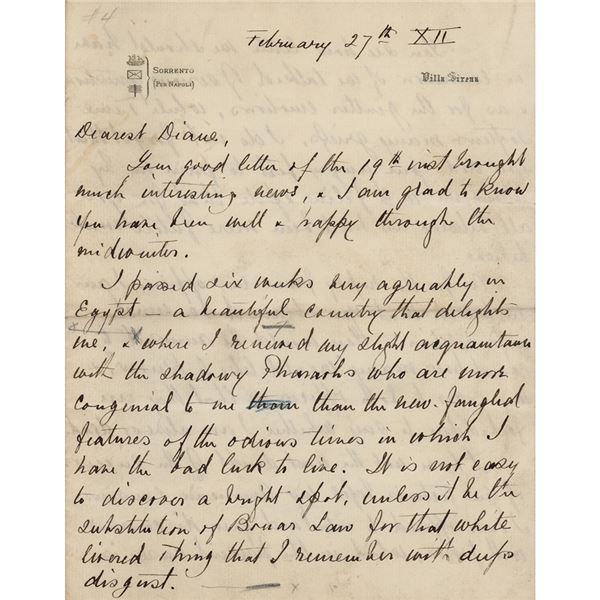 #4
February 27th XII
SORRENTO
(PER NAPOLI)
Villa Sirena
Dearest Diane,
Your good letter of the 19th inst brought
much interesting news, & I am glad to know
you have been well & happy through the
midwinter.
I passed six weeks very agreeably in
Egypt – a beautiful country that delights
me, & where I renewed my slight acquaintance
with the shadowy Pharaohs who are more
congenial to me than the new-fangled
features of the odious times in which I
have the bad luck to live. It is not easy
to discover a bright spot, unless it be the
substitution of Bonar Law for that white
livered thing that I remember with deep
disgust.